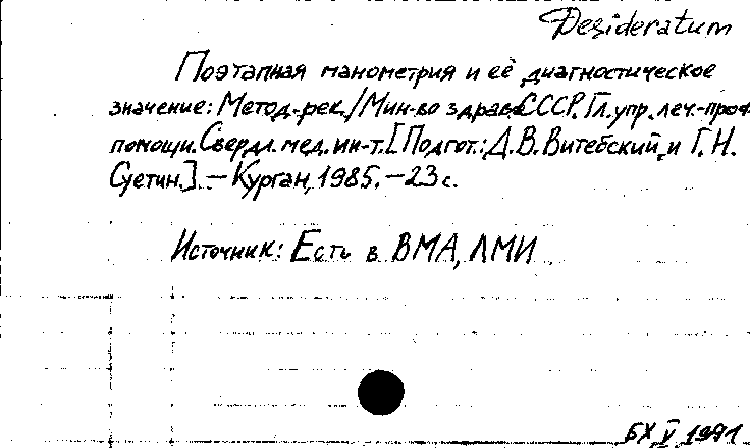 Desideratum
Поэтапная манометрия и её диагностическое
значение: Метод. рек./Мин-во здрав. СССР. Гл. упр. леч.-проф.
помощи. Свердл. мед. ин-т. [Подгот.: Д. В. Витебский и Г. Н.
Суетин.]. — Курган, 1985. — 23 с.
Источник: Есть в ВМА, ЛМИ
БХ V 1991